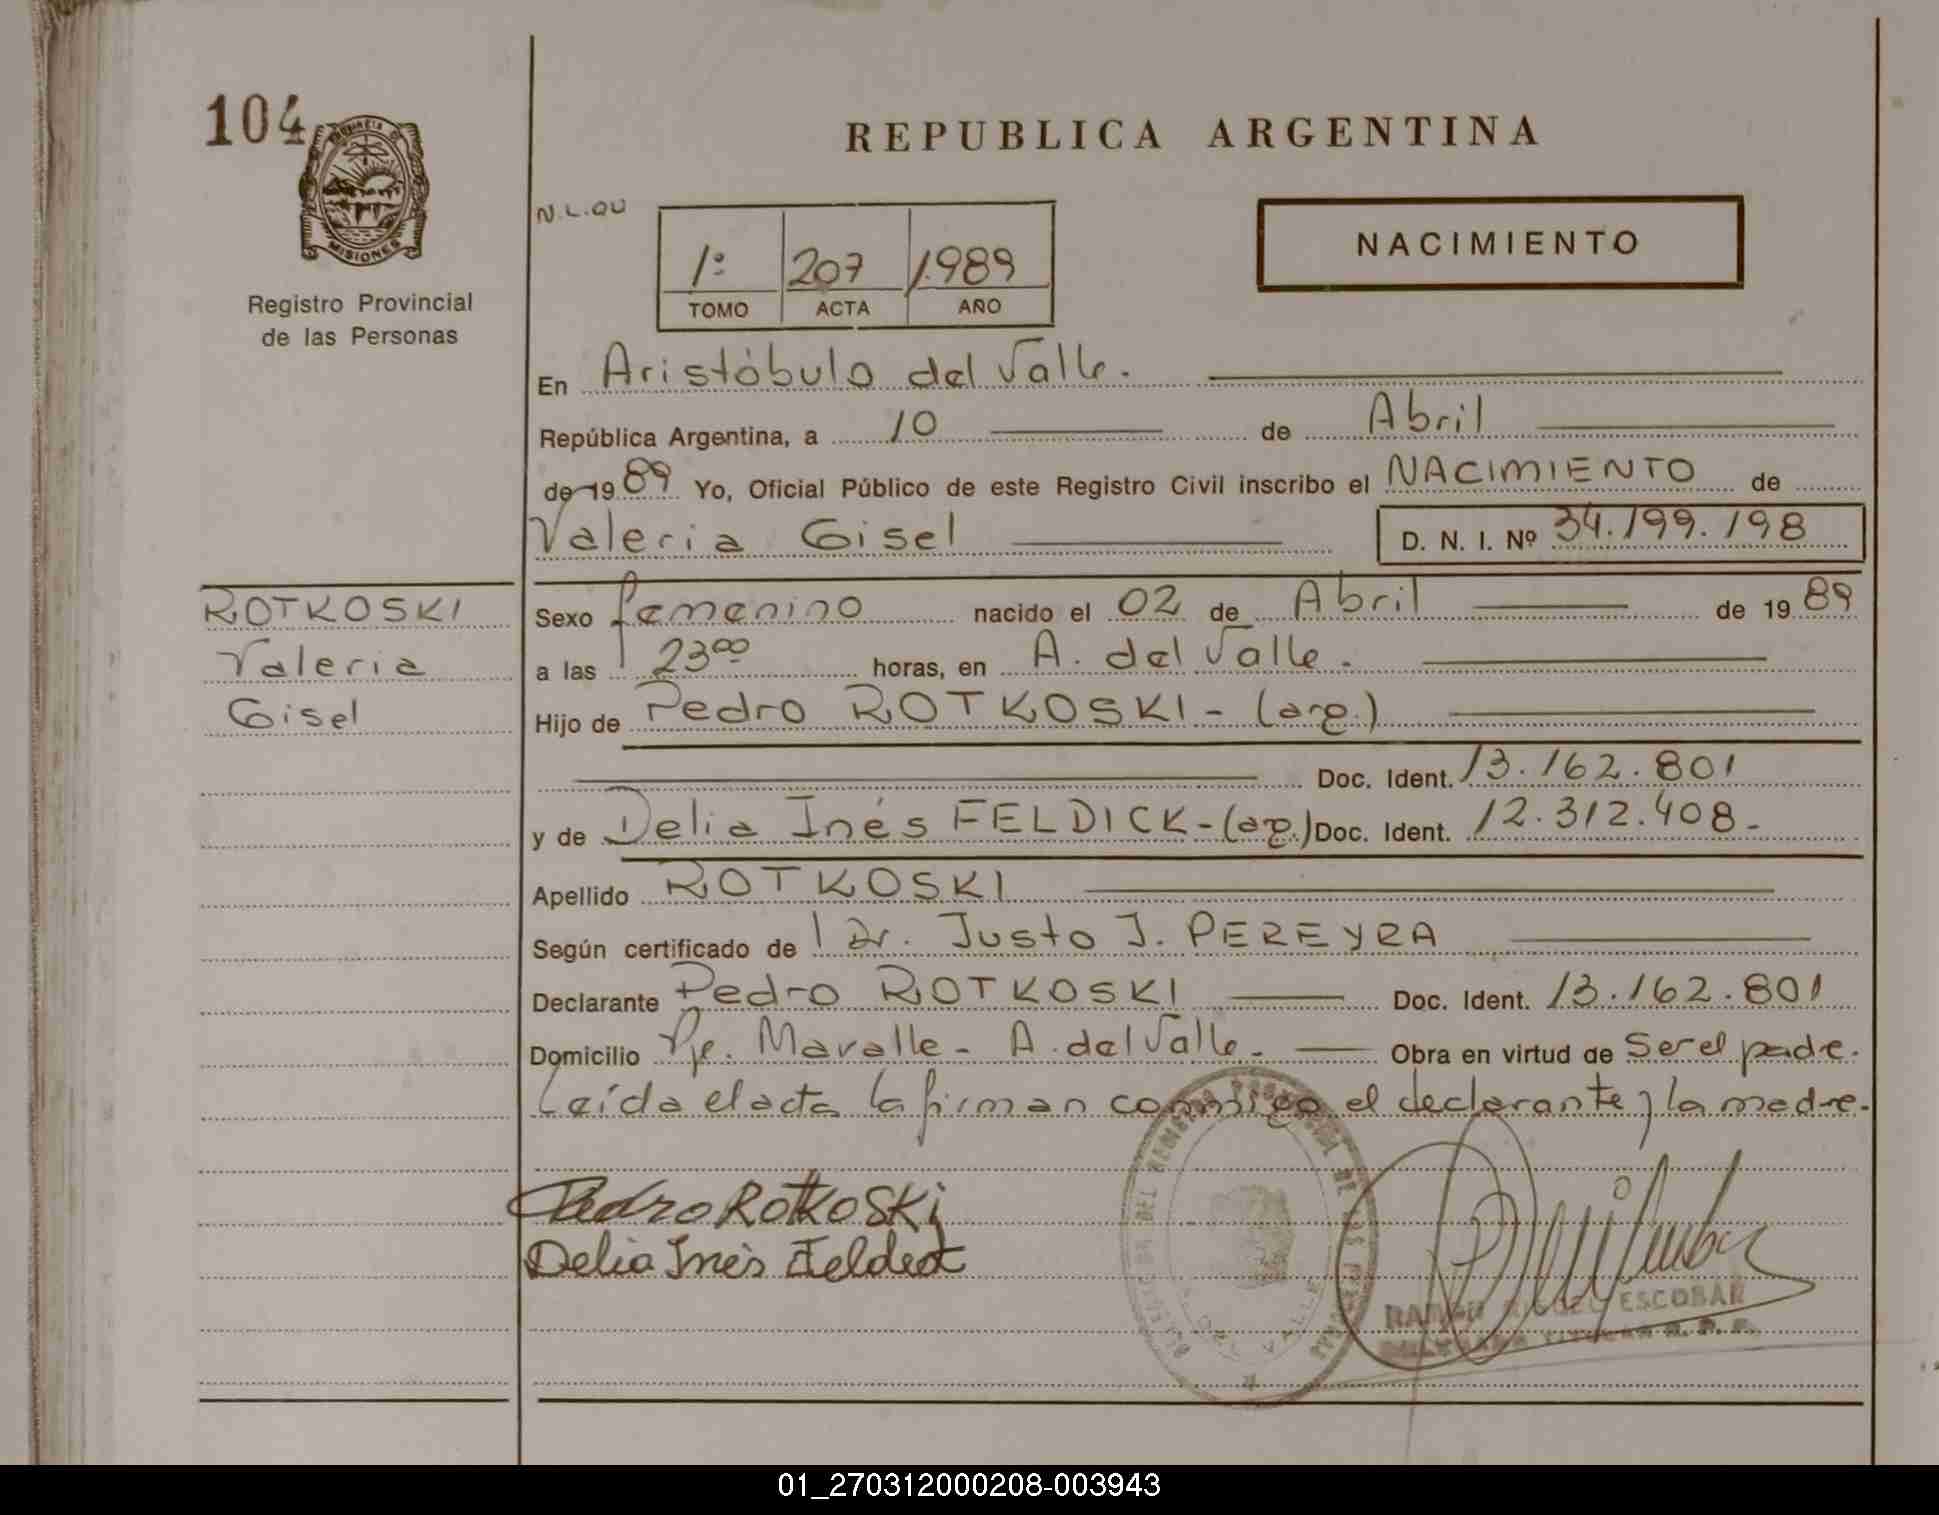 104
PROVINCIA D
MISIONES
Registro Provincial
de las Personas
REPUBLICA ARGENTINA
N.L.QU
1º 207 1.989
TOMO ACTA AÑO
NACIMIENTO
En Aristóbulo del Valle.
República Argentina, a 10 de Abril
de 19 89 Yo, Oficial Público de este Registro Civil inscribo el NACIMIENTO de
Valeria Gisel D. N. I. Nº 34.199.198
ROTKOSKI
Valeria
Gisel
Sexo femenino nacido el 02 de Abril de 19 89
a las 23⁰⁰ horas, en A. del Valle.
Hijo de Pedro ROTKOSKI - (arg.)
Doc. Ident. 13.162.801
y de Delia Inés FELDICK - (arg.) Doc. Ident. 12.312.408-
Apellido ROTKOSKI
Según certificado de Dr. Justo J. PEREYRA
Declarante Pedro ROTKOSKI Doc. Ident. 13.162.801
Domicilio Pje. Mavalle - A. del Valle - Obra en virtud de Ser el padre.
Leída el acta la firman conmigo el declarante y la madre.
Pedro RotkoSKi
Delia Inés
ESCOBAR
01_270312000208-003943